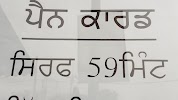 ਪੈਨ ਕਾਰਡ
ਸਿਰਫ 59ਮਿੰਟ